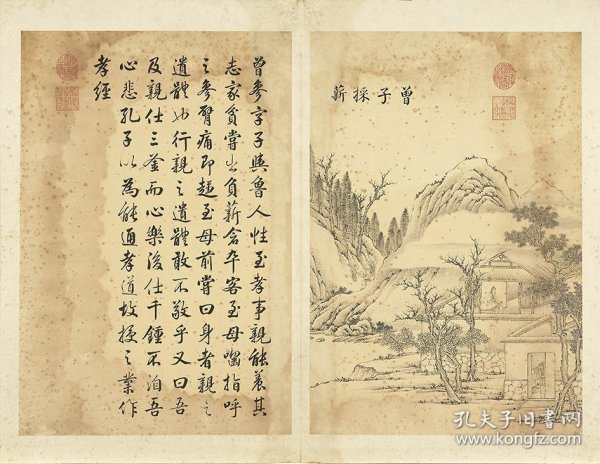 曾子採薪
曾參字子輿魯人性至孝事親能養其
志家貧嘗出負薪倉卒客至母嚙指呼
之參臂痛即趨至母前嘗曰身者親之
遺體也行親之遺體敢不敬乎又曰吾
及親仕三釜而心樂後仕千鍾不洎吾
心悲孔子以為能通孝道故授之業作
孝經
孔夫子旧书网
www.kongfz.com